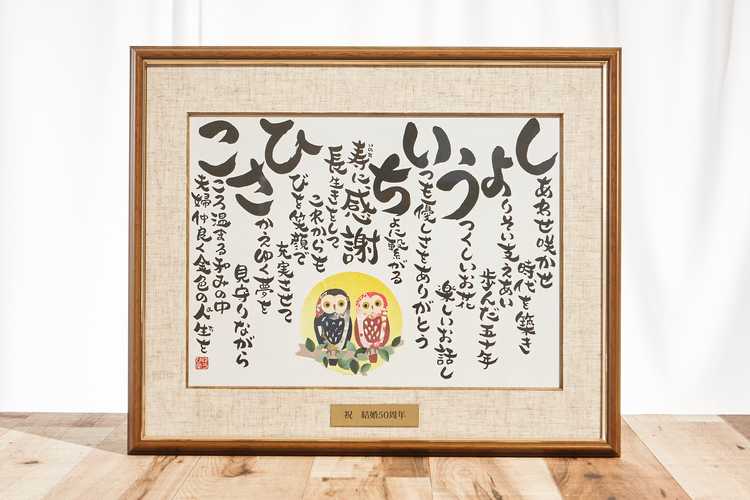 しあわせ咲かせ
時代を築き
よりそい支えあい
歩んだ五十年
うつくしいお花
楽しいお話し
いつも優しさをありがとう
ちよに繋がる
いのち
寿に感謝
長生きをして
これからも
ひびを笑顔で
充実させて
さかえゆく夢を
見守りながら
こころ温まる和みの中
夫婦仲良く金色の人生を
祝 結婚50周年